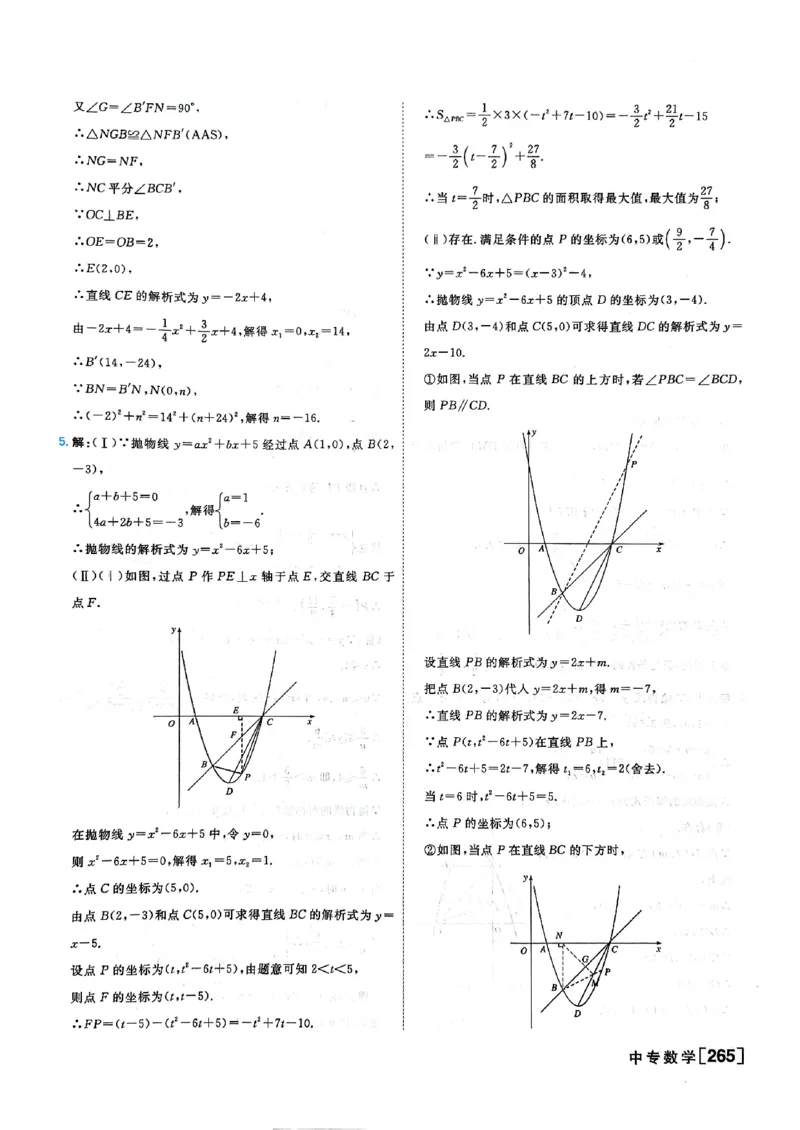 又∠G=∠B′FN=90°,
∴△NGB≌△NFB′(AAS),
∴NG=NF,
∴NC平分∠BCB′,
∵OC⊥BE,
∴OE=OB=2,
∴E(2,0),
∴直线CE的解析式为y=-2x+4,
由-2x+4=-1/4x²+3/2x+4,解得x₁=0,x₂=14,
∴B′(14,-24),
∵BN=B′N,N(0,n),
∴(-2)²+n²=14²+(n+24)²,解得n=-16.
5.解:(Ⅰ)∵抛物线y=ax²+bx+5经过点A(1,0),点B(2,
-3),
∴{a+b+5=0 4a+2b+5=-3,解得{a=1 b=-6.
∴抛物线的解析式为y=x²-6x+5;
(Ⅱ)(ⅰ)如图,过点P作PE⊥x轴于点E,交直线BC于
点F.
y
E
O A C x
F
B
P
D
在抛物线y=x²-6x+5中,令y=0,
则x²-6x+5=0,解得x₁=5,x₂=1.
∴点C的坐标为(5,0).
由点B(2,-3)和点C(5,0)可求得直线BC的解析式为y=
x-5.
设点P的坐标为(t,t²-6t+5),由题意可知2<t<5,
则点F的坐标为(t,t-5).
∴FP=(t-5)-(t²-6t+5)=-t²+7t-10.
∴S△PBC=1/2×3×(-t²+7t-10)=-3/2t²+21/2t-15
=-3/2(t-7/2)²+27/8.
∴当t=7/2时,△PBC的面积取得最大值,最大值为27/8;
(ⅱ)存在.满足条件的点P的坐标为(6,5)或(9/2,-7/4).
∵y=x²-6x+5=(x-3)²-4,
∴抛物线y=x²-6x+5的顶点D的坐标为(3,-4).
由点D(3,-4)和点C(5,0)可求得直线DC的解析式为y=
2x-10.
①如图,当点P在直线BC的上方时,若∠PBC=∠BCD,
则PB∥CD.
y
P
O A C x
B
D
设直线PB的解析式为y=2x+m.
把点B(2,-3)代入y=2x+m,得m=-7,
∴直线PB的解析式为y=2x-7.
∵点P(t,t²-6t+5)在直线PB上,
∴t²-6t+5=2t-7,解得t₁=6,t₂=2(舍去).
当t=6时,t²-6t+5=5.
∴点P的坐标为(6,5);
②如图,当点P在直线BC的下方时,
y
N
O A C x
G
P
M
B
D
中专数学[265]